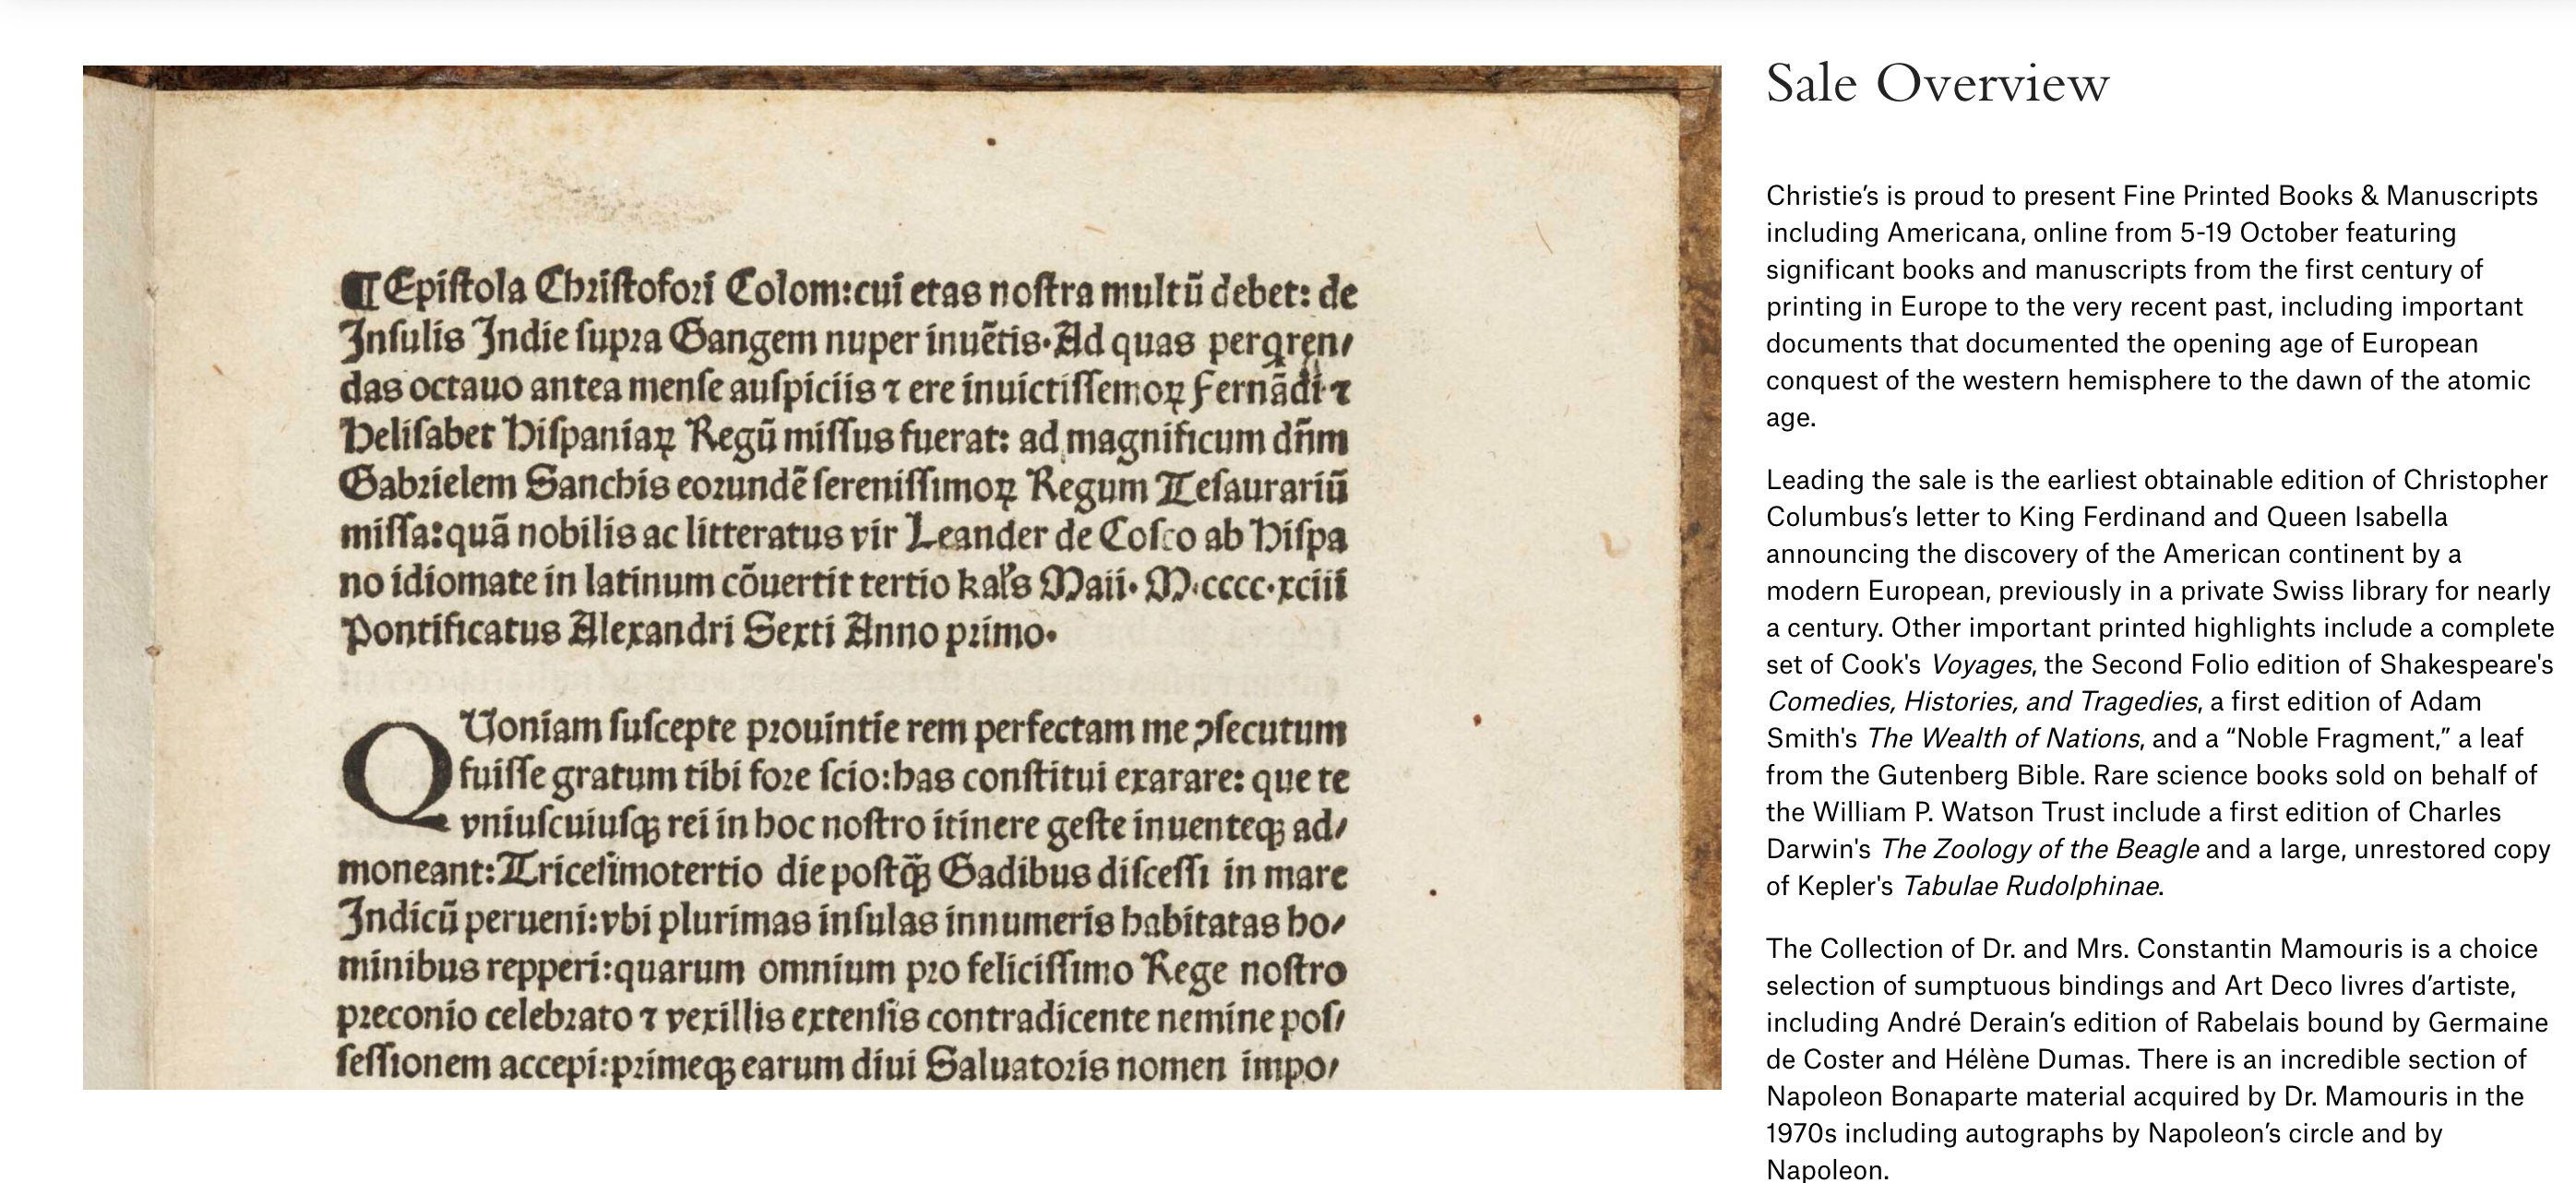 ¶Epiſtola Chriſtofori Colom:cui etas noſtra multū debet: de
Inſulis Indie ſupra Gangem nuper inuētis·Ad quas perqren/
das octauo antea menſe auſpiciis ⁊ ere inuictiſſemoꝝ Fernādi ⁊
Heliſabet Hiſpaniaꝝ Regū miſſus fuerat: ad magnificum dn̄m
Gabrielem Sanchis eorundē ſereniſſimoꝝ Regum Teſaurariū
miſſa:quā nobilis ac litteratus vir Leander de Coſco ab Hiſpa
no idiomate in latinum cōuertit tertio kal's Maii· M·cccc·xciii
Pontificatus Alexandri Sexti Anno primo·
QUoniam ſuſcepte prouintie rem perfectam me ↄſecutum
fuiſſe gratum tibi fore ſcio:has conſtitui exarare: que te
vniuſcuiuſqꝫ rei in hoc noſtro itinere geſte inuenteqꝫ ad/
moneant:Triceſimotertio die poſtq̄ꝫ Gadibus diſceſſi in mare
Indicū perueni:vbi plurimas inſulas innumeris habitatas ho/
minibus repperi:quarum omnium pro feliciſſimo Rege noſtro
preconio celebrato ⁊ vexillis extenſis contradicente nemine poſ/
ſeſſionem accepi:primeqꝫ earum diui Saluatoris nomen impo/
Sale Overview
Christie’s is proud to present Fine Printed Books & Manuscripts
including Americana, online from 5-19 October featuring
significant books and manuscripts from the first century of
printing in Europe to the very recent past, including important
documents that documented the opening age of European
conquest of the western hemisphere to the dawn of the atomic
age.
Leading the sale is the earliest obtainable edition of Christopher
Columbus’s letter to King Ferdinand and Queen Isabella
announcing the discovery of the American continent by a
modern European, previously in a private Swiss library for nearly
a century. Other important printed highlights include a complete
set of Cook's Voyages, the Second Folio edition of Shakespeare's
Comedies, Histories, and Tragedies, a first edition of Adam
Smith's The Wealth of Nations, and a “Noble Fragment,” a leaf
from the Gutenberg Bible. Rare science books sold on behalf of
the William P. Watson Trust include a first edition of Charles
Darwin's The Zoology of the Beagle and a large, unrestored copy
of Kepler's Tabulae Rudolphinae.
The Collection of Dr. and Mrs. Constantin Mamouris is a choice
selection of sumptuous bindings and Art Deco livres d’artiste,
including André Derain’s edition of Rabelais bound by Germaine
de Coster and Hélène Dumas. There is an incredible section of
Napoleon Bonaparte material acquired by Dr. Mamouris in the
1970s including autographs by Napoleon’s circle and by
Napoleon.